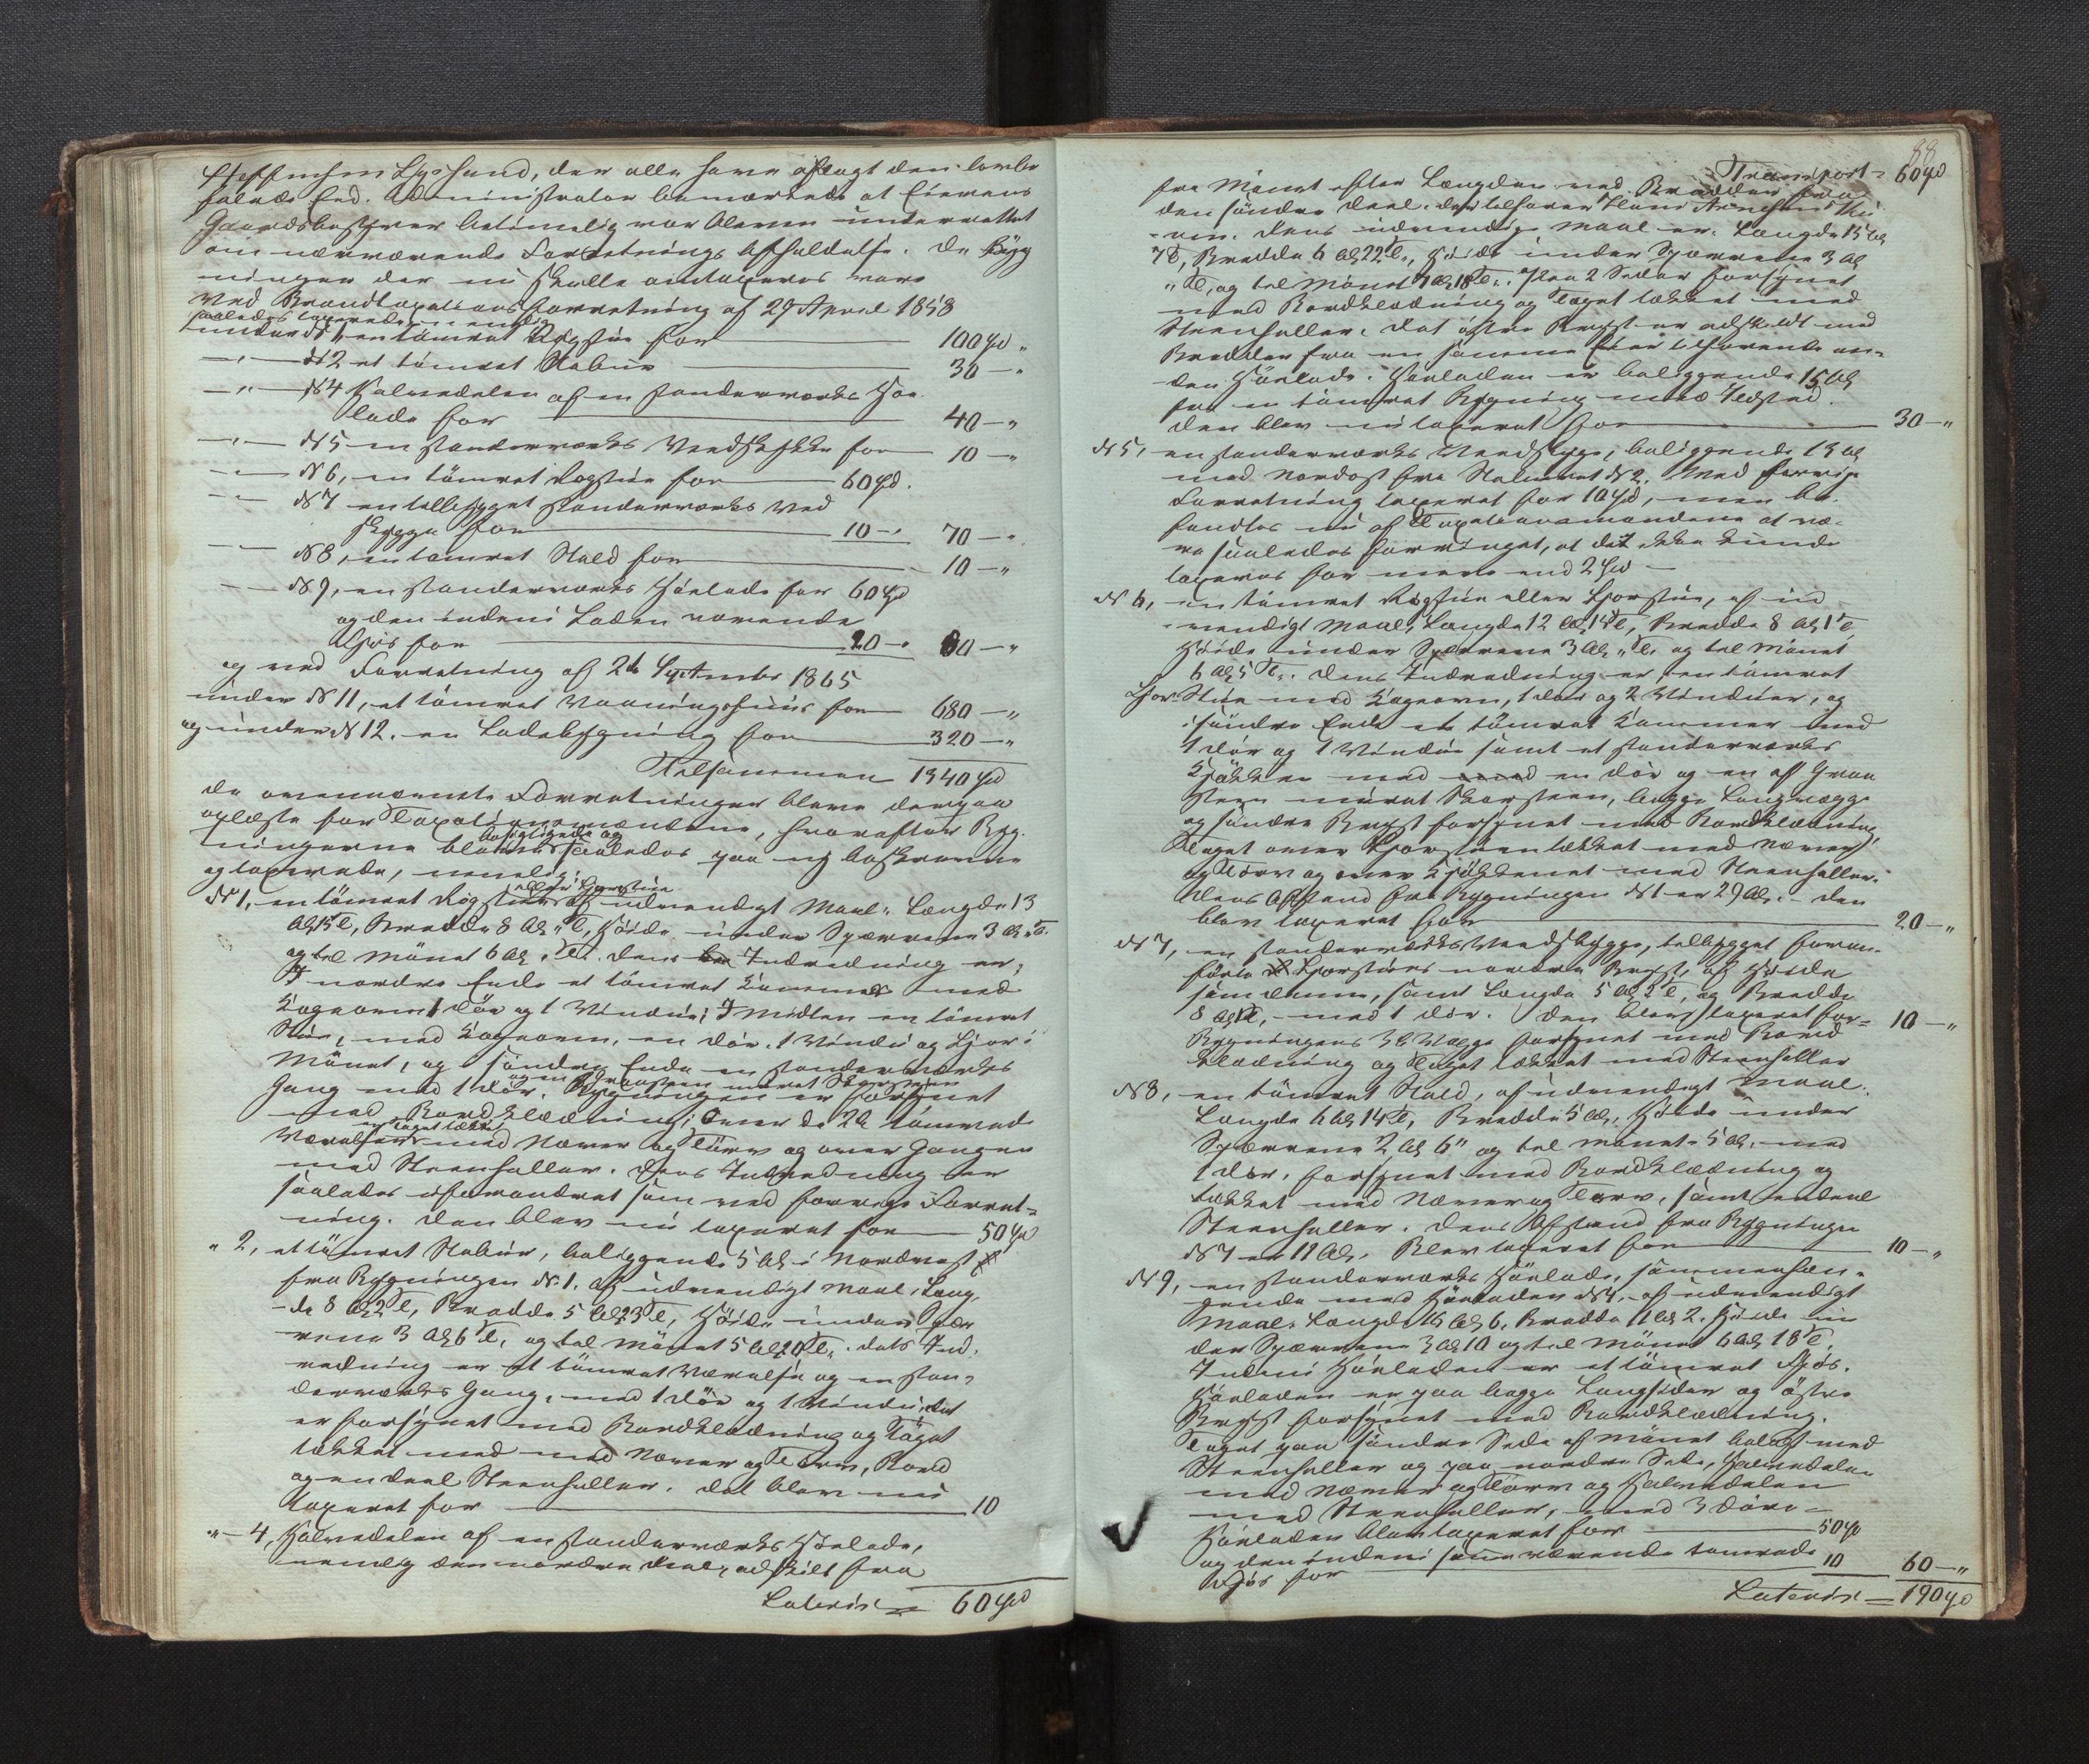 Steffensen Lysesund, der alle have aflagt den lovbe
falede Eed. Administrator bemærkede at Eierens
Gaardsbestyrer betimelig var bleven underrettet
om nærværende Forretnings Afholdelse. De Byg
ninger der nu skulle omtaxeres vare
ved Brandtaxationsforretning af 29 April 1858
saaledes taxerede, nemlig
under N 1, en tømret Røgstue for 100 Spd "
" N 2 et tømret Stabur 30 "
" N 4 Halvedelen af en standerværks Høe
lade for 40 "
" N 5 en standerværks Vedskykke for 10 "
" N 6, en tømret Røgstue for 60 Spd.
N 7 en tilbygget standerværks Ved
skygge for 10 70 "
N 8, en tømret Stald for 10 "
N 9, en standerværks Høelade for 60 Spd
og den indeni Laden værende
Fjøs for 20 80 "
og ved Forretning af 26 September 1865
under N 11, et tømret Vaaningshuus for 680 "
og under N 12. en Ladebygning for 320 "
Tilsammen 1340 Spd
De ovennævnte Forretninger bleve derpaa
oplæste for Taxationsmændene, hvorefter Byg
ningerne bleve besigtigede og saaledes paa ny beskrevne
og taxerede, nemlig:
N 1, en tømret Røgstue eller Ljorstue af udvendigt Maal: Længde 13
Al 15 T, Bredde 8 Al " T, Høide under Spærrene 3 Al " T.
og til Mønet 6 Al. " T. Dens Indredning er;
I nordre Ende et tømret Kammer med
Kageovn 1 Dør og 1 Vindue; I Midten en tømret
Stue, med Kageovn, en Dør, 1 Vindu og Ljor i
Mønet, og i søndre Ende en standerværks
Gang med 1 Dør. og en Graasteen muret Skorsteen Bygningen er forsynet
med Bordklædning; over de 2de tømrede
Værelser er Taget tækket med Næver og Tørv og over Gangen
med Steenheller. Dens Indredning er
saaledes uforandret som ved forrige Forret-
ning. Den blev nu taxeret for 50 Spd
" 2, et tømret Stabur, beliggende 5 Al i Nordvest
fra Bygningen N. 1, af udvendigt Maal, Læng
-de 8 Al 2 T, Bredde 5 Al 23 T, Høide under Spær
rene 3 Al 6 T, og til Mønet 5 Al 20 T.. Dets Ind-
redning er et tømret Værelse og en stan-
derværks Gang, med 1 Dør og 1 Vindu, det
er forsynet med Bordklædning og Taget
tækket med med Næver og Tørv, Bord
og en deel Steenheller. Det blev nu
taxeret for 10
" 4, Halvedelen af en standerværks Høelade,
nemlig den nordre Deel, adskilt fra
Lateris 60 Spd
88
Transport 60 Spd
fra Mønet efter Længden ved Brædder fra
den søndre Deel, der tilhører Hans Arnesen
Dens udvendige Maal er: Længde 15 Al
7 T, Bredde 6 Al 22 T., Høide under Spærrene 3 Al
" T, og til Mønet 7 Al 18 T.. Paa 2 Sider forsynet
med Bordklædning og Taget tækket med
Steenheller. Det østre Bryst er adskildt med
Brædder fra en samme Eier tilhørende an-
den Høelade. Høeladen er beliggende 15 Al
fra en tømret Bygning med Ildsted.
Den blev nu taxeret for 30 "
N 5, en standerværks Veedskygge, beliggende 13 Al
mod Nordost fra Staburet N 2. Med forrige
Forretning taxeret for 10 Spd, men be-
fandtes nu af Taxationsmændene at væ-
re saaledes forringet, at det ikke kunde
taxeres for mere end 2 Spd
N 6, en tømret Røgstue eller Ljorstue, af ud
-vendigt Maal, Længde 12 Al 14 T, Bredde 8 Al 1 T
Høide under Spærrene 3 Al " T. og til Mønet
6 Al 5 T.. Dens Indredning er, en tømret
Ljor Stue med Kageovn, 1 Dør og 2 Vinduer, og
i søndre Ende et tømret Kammer med
1 Dør og 1 Vindue samt et standerværks
Kjøkken med en Dør og en af Graa
steen muret Skorsteen, begge Langvægge
og søndre Bryst forsynet med Bordklædning,
Taget over Ljorstuen tækket med Næver
og Tørv og over Kjøkkenet med Steenheller.
Dens Afstand fra Bygningen N 1 er 29 Al. Den
blev taxeret for 20 "
N 7, en standerværks Veedskygge, tilbygget foran-
førte Ljorstues nordre Bryst, af Høide
som denne, samt Længde 5 Al 2 T, og Bredde
8 Al 1 T, med 1 Dør. Den blev taxeret for 10 "
Bygningens 3de Vægge forsynet med Bord
klædning og Taget tækket med Steenheller
N 8, en tømret Stald, af udvendigt Maal.
Længde 6 Al 14 T, Bredde 5 Al, Høide under
Spærrene 2 Al 6" og til Mønet 5 Al. med
1 Dør, forsynet med Bordklædning og
tækket med Næver og Tørv, samt endeel
Steenheller. Dens Afstand fra Bygningen
N 7 er 11 Al. Blev taxeret for 10 "
N 9, en standerværks Høelade, sammenhæn-
gende med Høeladen N 4, af udvendigt
Maal. Længde 16 Al 6, Bredde 11 Al 2. Høide un
der Spærrene 3 Al 10 og til Mønet 6 Al 18 T
Indeni Høeladen er et tømret Fjøs.
Høeladen er paa begge Langsider og østre
Bryst forsynet med Bordklædning.
Taget paa søndre Side af Mønet belagt med
Steenheller og paa nordre Side, Halvedelen
med Næver og Tørv og Halvedelen
med Steenheller, med 3 Døre
Høeladen blev taxeret for 50 Spd
og den indeni samme værende tømrede
Fjøs for 10 60 "
Lateris 190 Spd